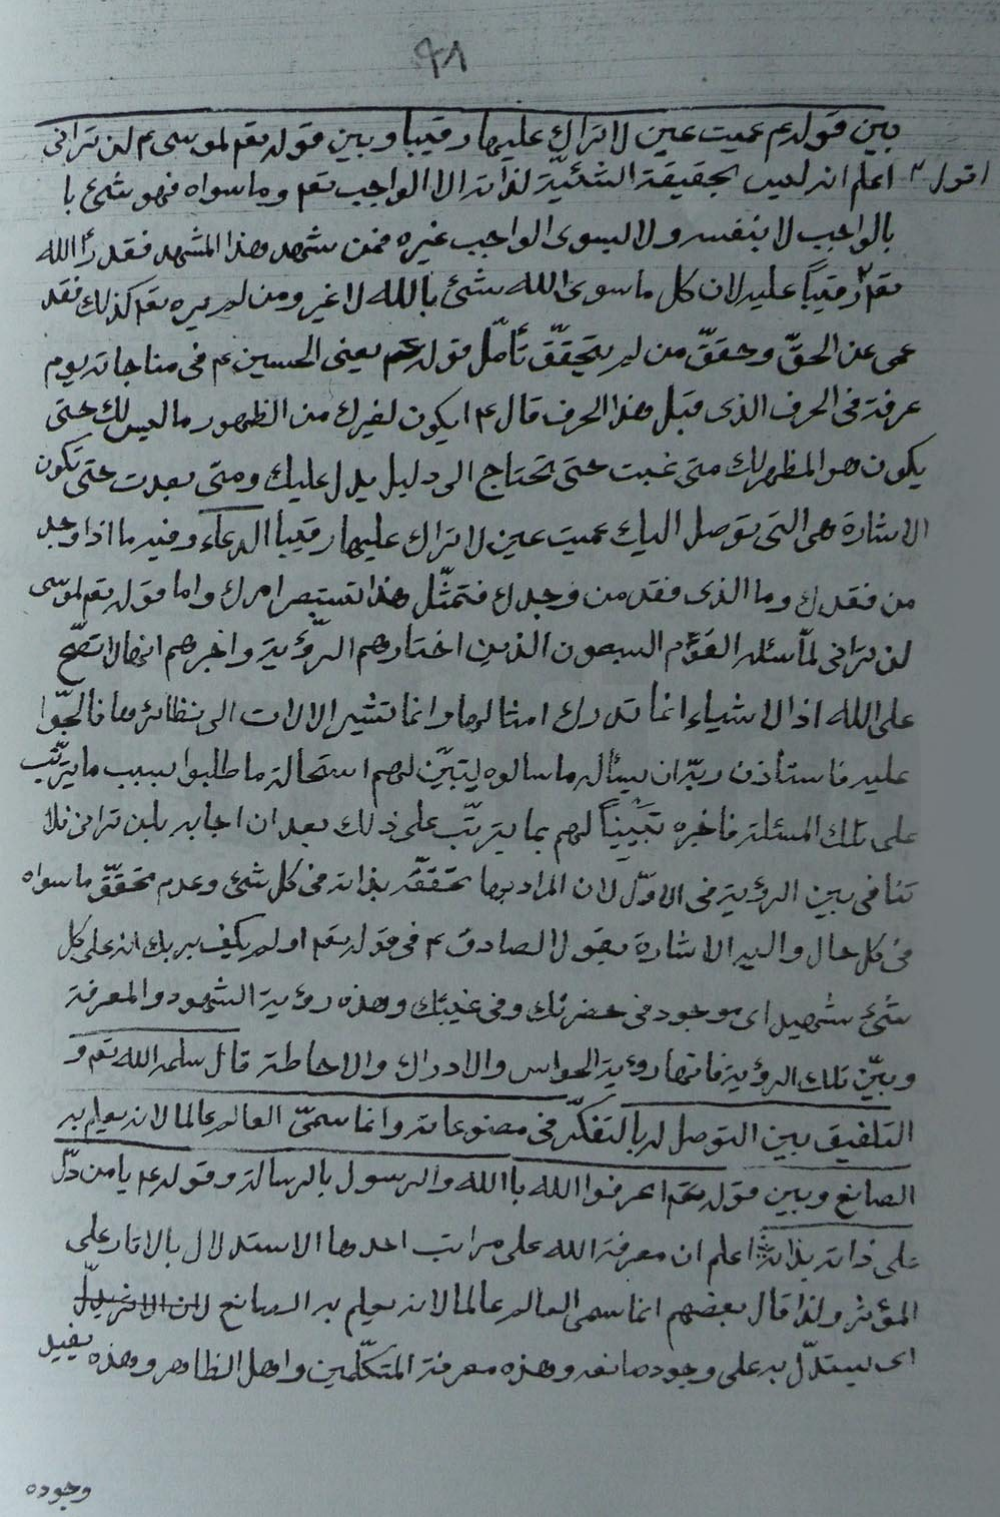 ٤١
بين قوله ع عميت عين لا تراك عليها رقيبا وبين قوله تعم لموسى ع لن تراني
اقول اعلم انه ليس بحقيقة الشئيّة لذاته الا الواجب تعم وما سواه فهو شئ با
بالواجب لا بنفسه ولا لسوى الواجب غيره فمن شهد هذا المشهد فقد رأ الله
تعم رقيباً عليه لان كل ما سوى الله شئ بالله لا غير ومن لم يره تعم كذلك فقد
عمى عن الحقّ وحقّق من لم يتحقّق تأمّل قوله ع يعني الحسين ع في مناجاته يوم
عرفة في الحرف الذى قبل هذا الحرف قال ع ايكون لغيرك من الظهور ما ليس لك حتى
يكون هو المظهر لك متى غبت حتى تحتاج الى دليل يدل عليك ومتى بعدت حتى تكون
الاشارة هى التى توصل اليك عميت عين لا تراك عليها رقيبا الدعاء وفيه ما ذا وجد
من فقدك وما الذى فقد من وجدك فتمثّل هذا تستبصر امرك واما قوله تعم لموسى
لن تراني لمّا سئله القوم السبعون الذين اختارهم الرّؤية واخبرهم انها لا تصّح
على الله اذ الاشياء انما تدرك امثالها وانما تشير الالات الى نظائرها فالحّوا
عليه فاستأذن ربّه ان يسأله ما سالوه ليتبيّن لهم استحالة ما طلبوا بسبب ما يترتّب
على تلك المسئلة فاخبره تبييناً لهم بما يترتّب على ذلك بعد ان اجابه بلن تراني فلا
تنافي بين الرؤية في الاوّل لان المراد بها تحقّقه بذاته في كل شئ وعدم تحقّق ما سواه
في كل حال واليه الاشارة بقول الصادق ع في قوله تعم اولم يكف بربك انه على كل
شئ شهيد اى موجود في حضرتك وفي غيبتك وهذه رؤية الشهود والمعرفة
وبيّن تلك الرؤية فانها رؤية الحواس والادراك والاحاطة قال سلمه الله تعم و
التلفيق بين التوصل له بالتفكّر في مصنوعاته وانما سمىّ العالم عالما لانه يعلم به
الصانع وبين قوله ع اعرفوا الله بالله والرسول بالرسالة وقوله ع يا من دلّ
على ذاته بذاته اعلم ان معرفة الله على مراتب احدها الاستدلال بالاثار على
المؤثر ولذا قال بعضهم انما سمى العالم عالما لانه يعلم به الصانع لان الاثر يدلّ
اى يستدلّ به على وجود صانعه وهذه معرفة المتكلّمين واهل الظاهر وهذه يفيد
وجوده